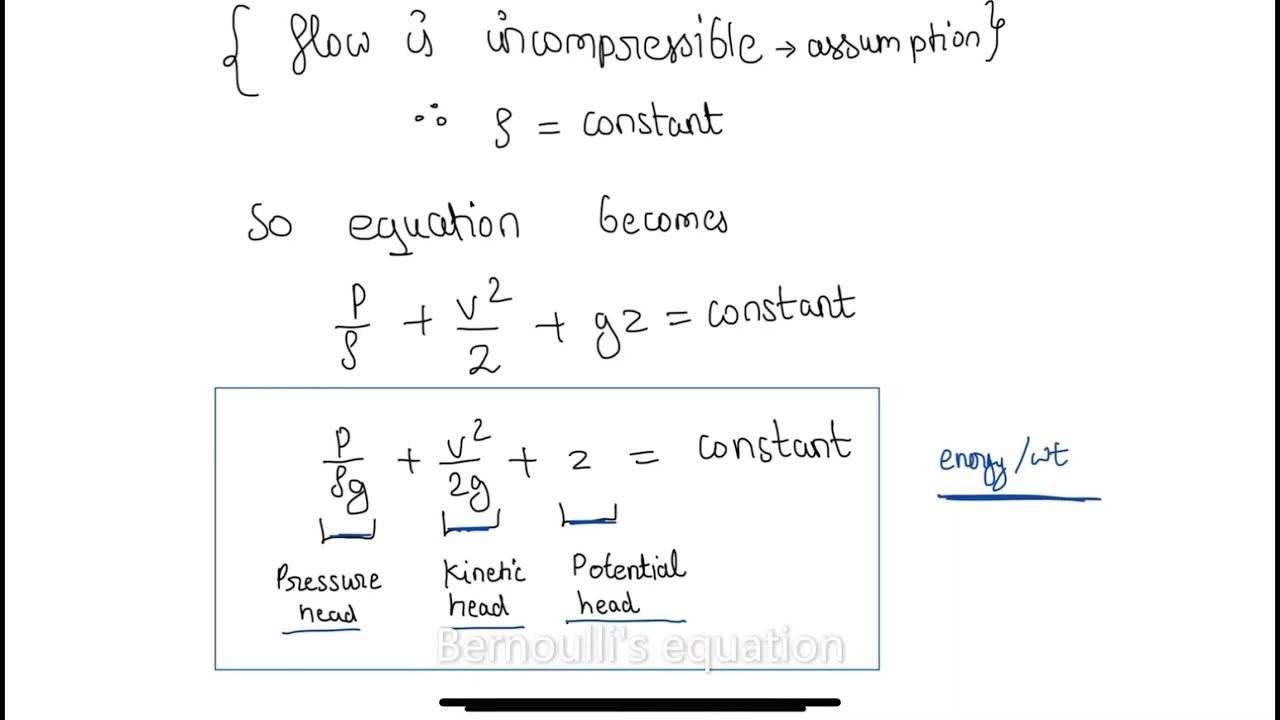 { flow is incompressible → assumption}
∴ ρ = constant
So equation becomes
P/ρ + v²/2 + gz = constant
P/ρg + v²/2g + z = constant
energy/wt
Pressure head
Kinetic head
Potential head
Bernoulli's equation